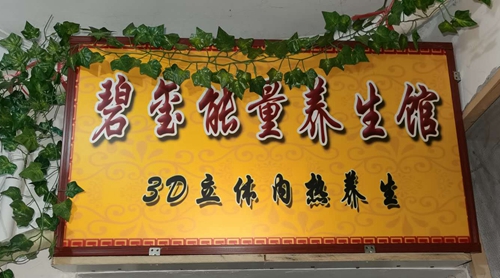 碧玺能量养生馆
3D立体内热养生